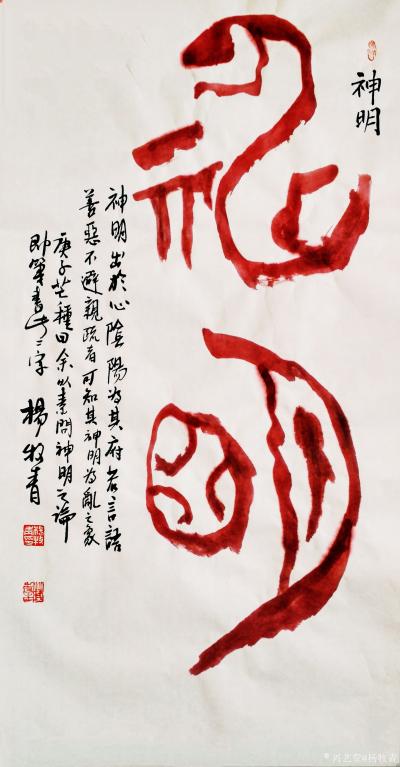 神明
神明
神明出於心陰陽為其府若言語
善惡不避親疏者可知其神明為亂之象
庚子芒種日余以素問神明之論
即筆書此二字 楊牧青
兴艺堂@杨牧青